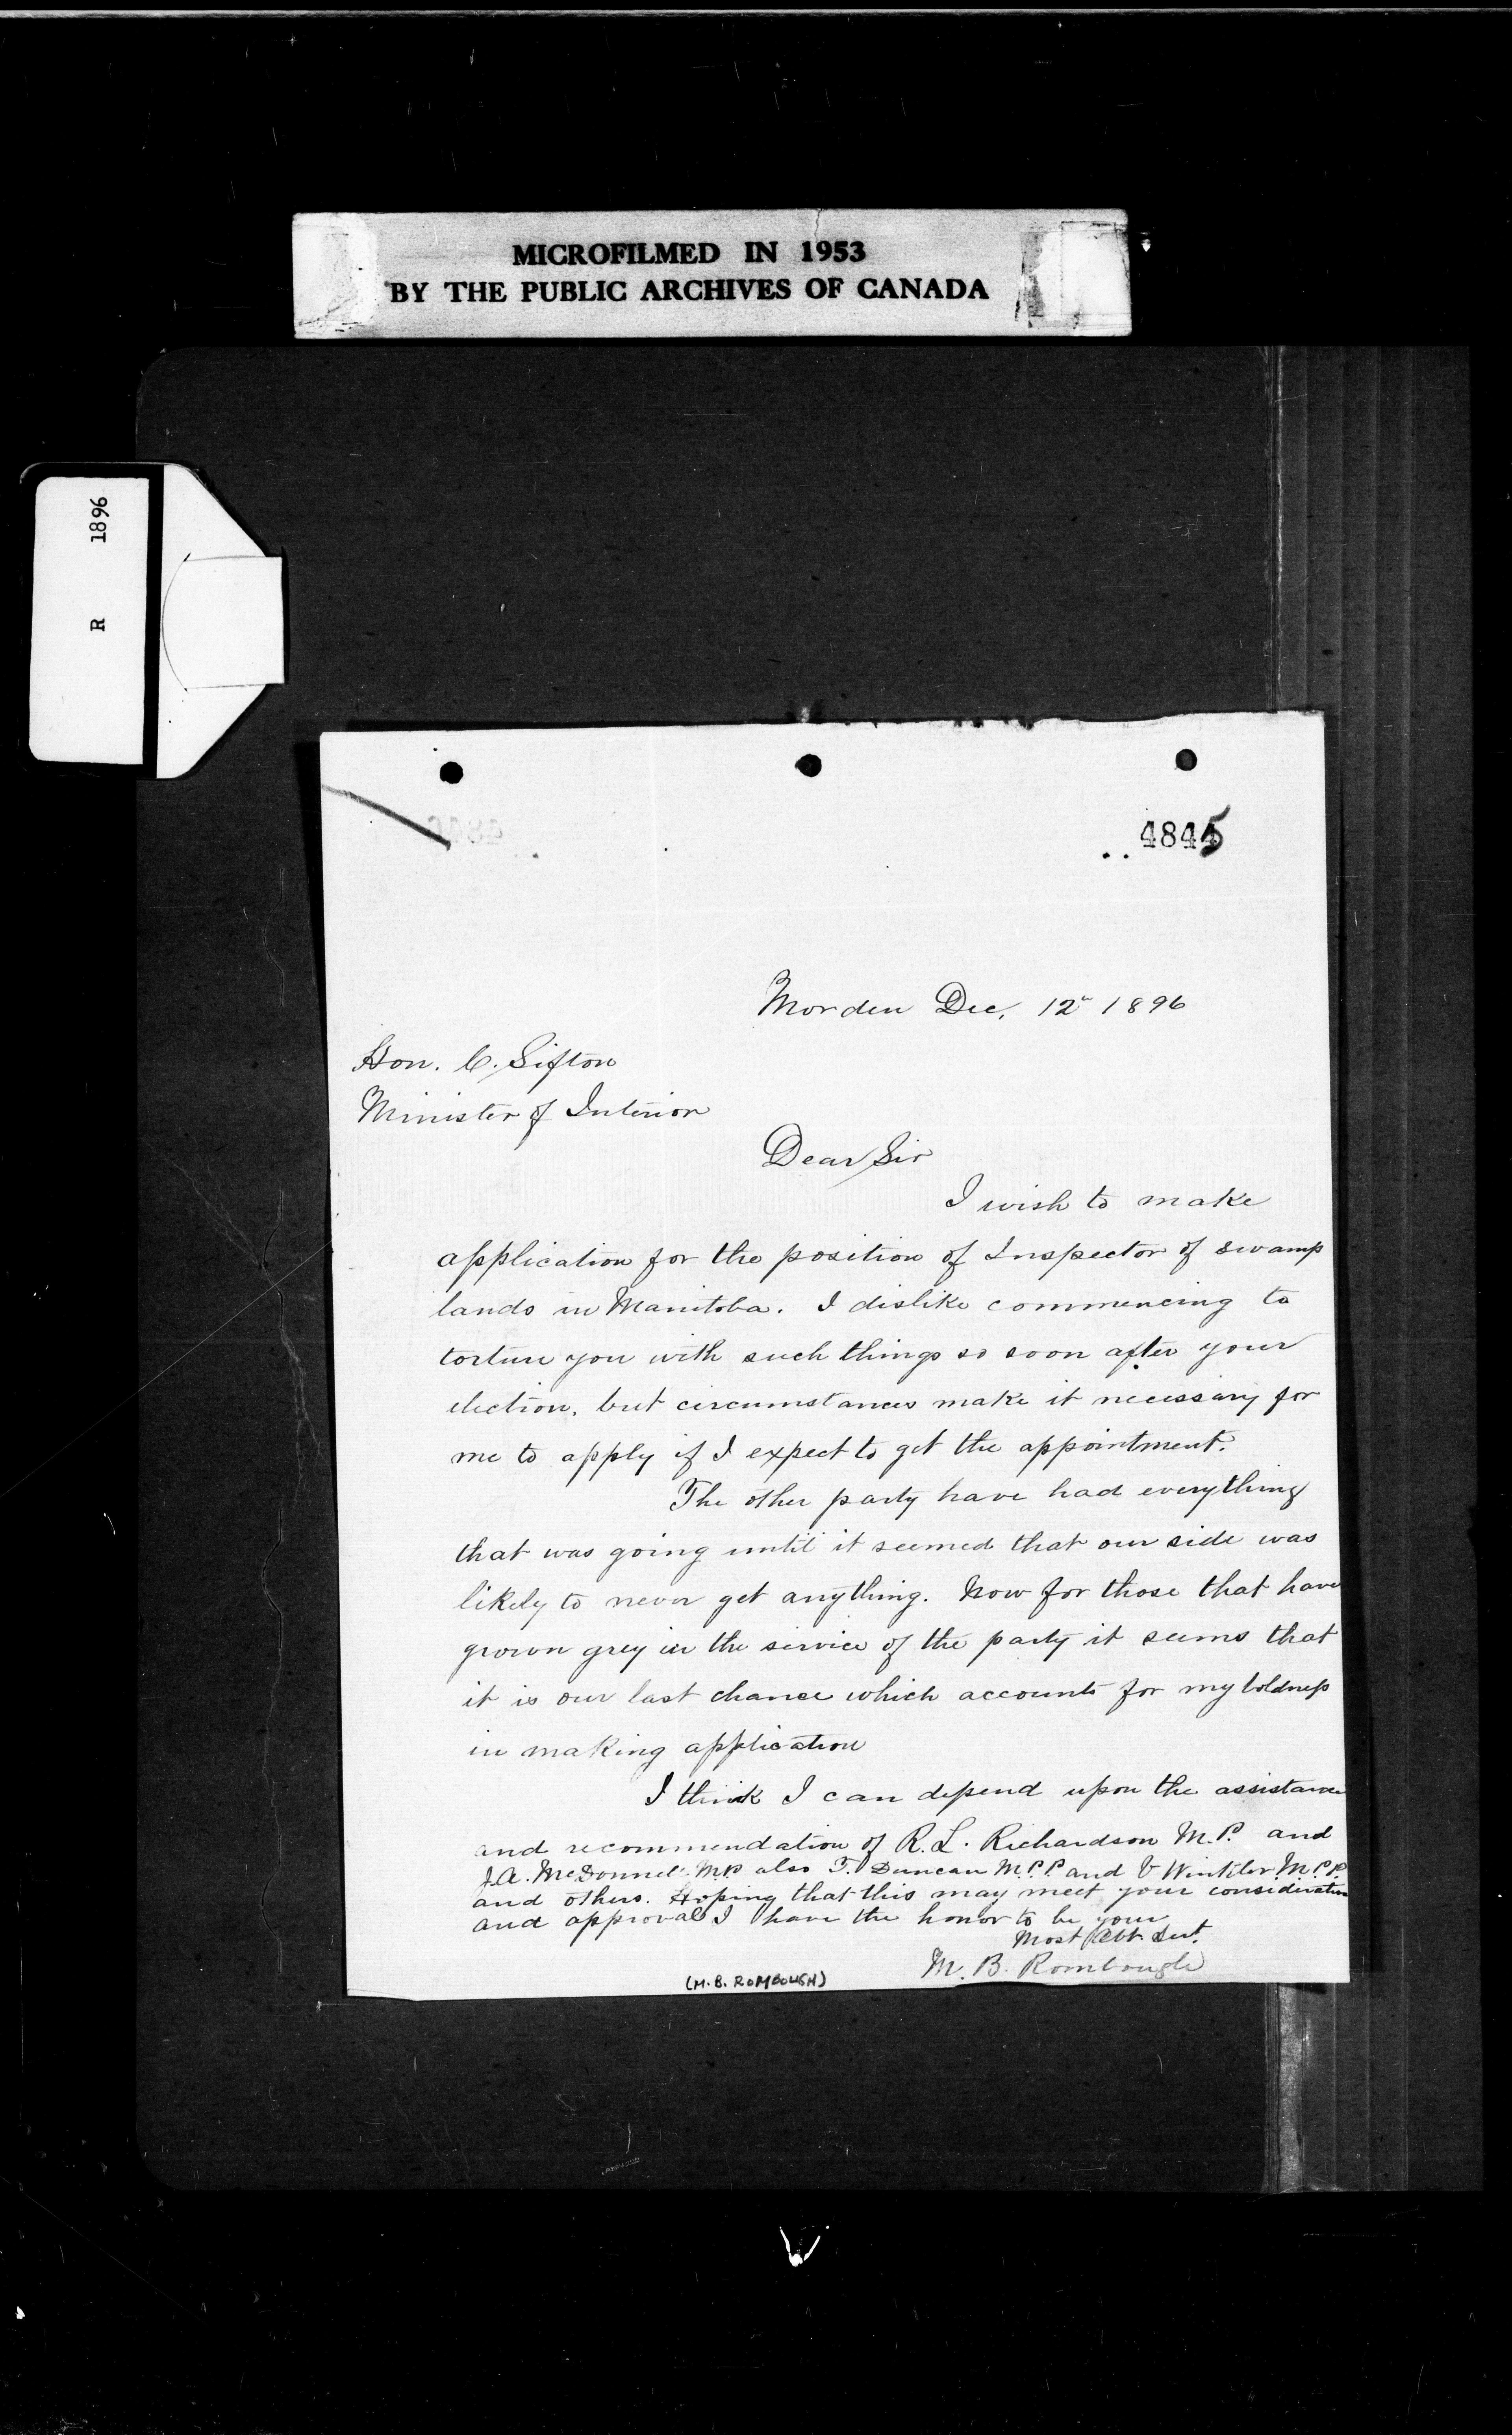 MICROFILMED IN 1953
BY THE PUBLIC ARCHIVES OF CANADA
R 1896
4845
Morden Dec. 12th 1896
Hon. C. Sifton
Minister of Interior
Dear Sir
I wish to make
application for the position of Inspector of swamp
lands in Manitoba. I dislike commencing to
torture you with such things so soon after your
election, but circumstances make it necessary for
me to apply if I expect to get the appointment.
The other party have had everything
that was going until it seemed that our side was
likely to never get anything. Now for those that have
grown grey in the service of the party it seems that
it is our last chance which accounts for my boldness
in making application
I think I can depend upon the assistance
and recommendation of R. L. Richardson M.P. and
J. A. McDonnel M.P. also T. Duncan M.P.P. and V Winkler M.P.P.
and others. Hoping that this may meet your consideration
and approval I have the honor to be your
Most Obt. Svt.
M. B. Rombough
(M. B. ROMBOUGH)